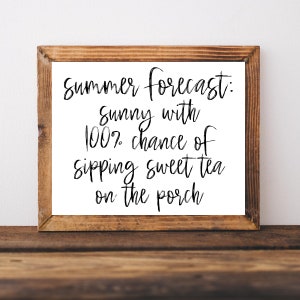 summer forecast:
sunny with
100% chance of
sipping sweet tea
on the porch